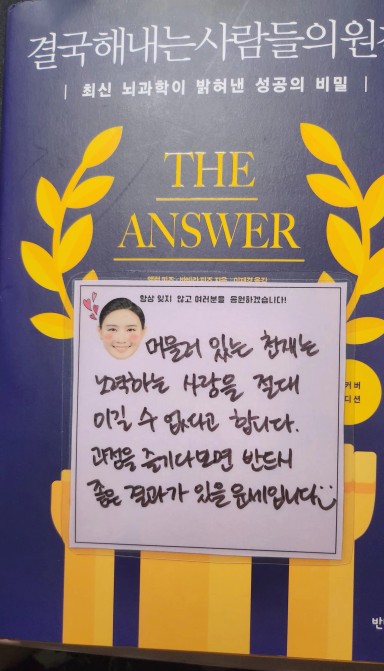 결국 해내는 사람들의 원
| 최신 뇌과학이 밝혀낸 성공의 비밀 |
THE
ANSWER
항상 잊지 않고 여러분을 응원하겠습니다!
커버
디션
머물러 있는 천재는
노력하는 사람을 절대
이길 수 없다고 합니다.
과정을 즐기다보면 반드시
좋은 결과가 있을 운세입니다
반